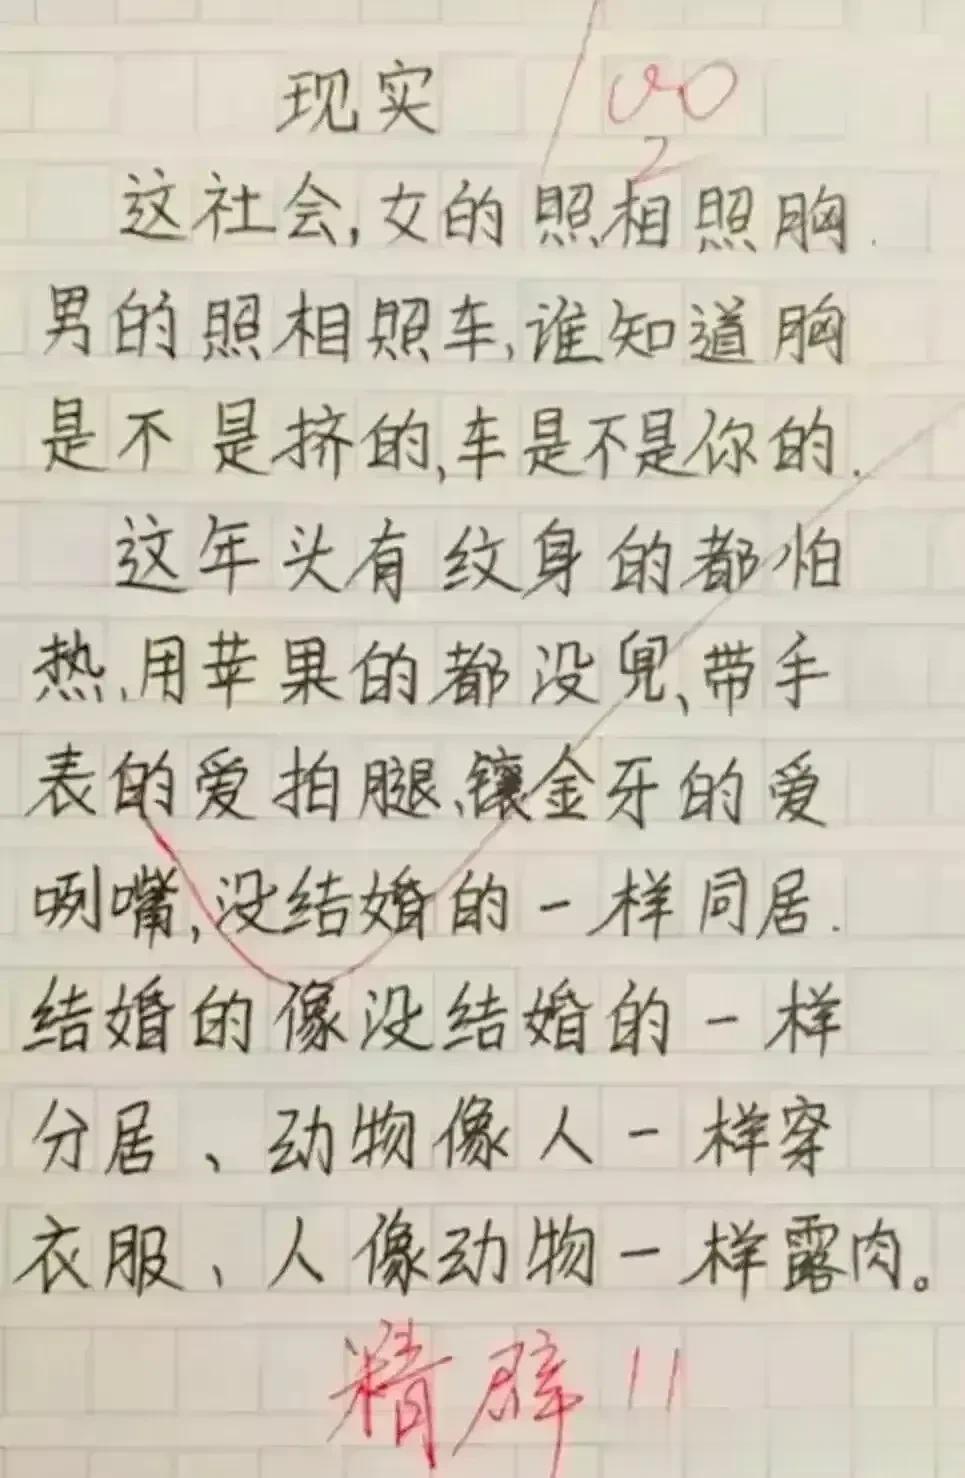 现实
100
2
这社会,女的照相照胸.
男的照相照车,谁知道胸
是不是挤的,车是不是你的.
这年头有纹身的都怕
热、用苹果的都没兜、带手
表的爱拍腿、镶金牙的爱
咧嘴,没结婚的一样同居.
结婚的像没结婚的一样
分居、动物像人一样穿
衣服、人像动物一样露肉。
精辟!!